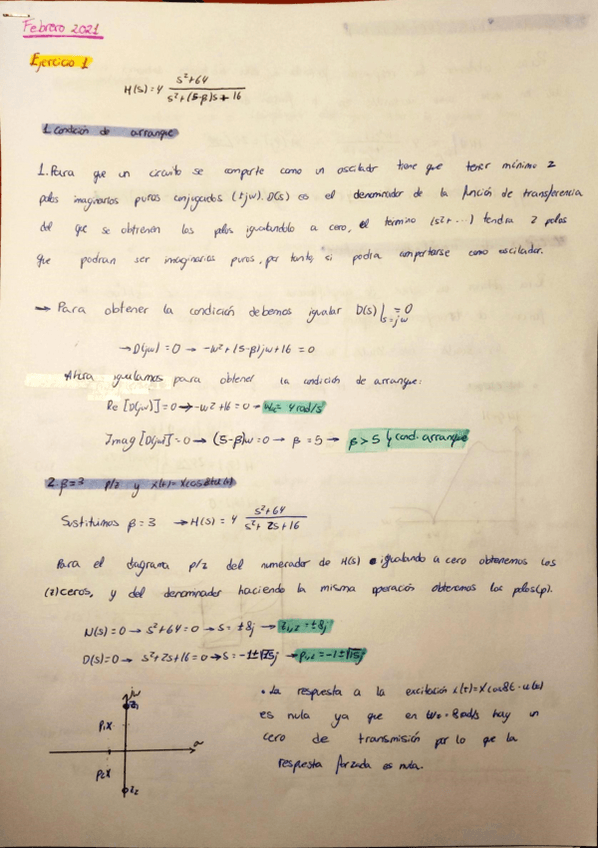 Febrero 2021
Ejercicio 1
H(s)=4 (s²+64)/(s²+(5-β)s+16)
1. Condición de arranque
1. Para que un circuito se comporte como un oscilador tiene que tener mínimo 2
polos imaginarios puros conjugados (±jω). D(s) es el denominador de la función de transferencia
del que se obtienen los polos igualandolo a cero, el termino (s²+...) tendra 2 polos
que podran ser imaginarios puros, por tanto, si podra comportarse como oscilador.
→ Para obtener la condición debemos igualar D(s)|s=jω = 0
→ D(jω) = 0 → -ω²+(5-β)jω+16 = 0
Ahora igualamos para obtener la condición de arranque:
Re [D(jω)]=0 → -ω²+16=0 → ω₀= 4 rad/s
Imag [D(jω)]=0 → (5-β)ω=0 → β=5 → β>5 cond. arranque
2. β=3 p/z y x(t)=Xcos8tu(t)
Sustituimos β=3 → H(s)= 4 (s²+64)/(s²+2s+16)
Para el diagrama p/z del numerador de H(s) igualando a cero obtenemos los
(z)ceros, y del denominador haciendo la misma operación obtenemos los polos(p).
N(s)=0 → s²+64=0 → s=±8j → z₁,₂=±8j
D(s)=0 → s²+2s+16=0 → s=-1±√15j → p₁,₂=-1±√15j
jω
z₁
p₁X
σ
p₂X
z₂
• La respuesta a la excitación x(t)=Xcos8t·u(t)
es nula ya que en ω₀=8rad/s hay un
cero de transmisión por lo que la
respuesta forzada es nula.